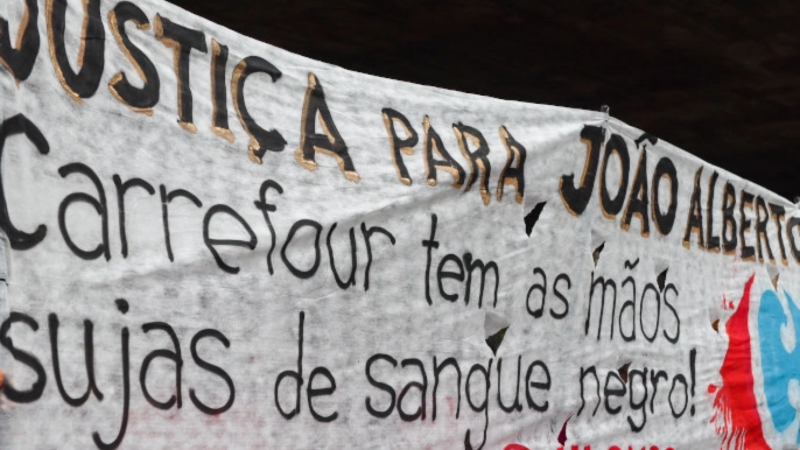 JUSTIÇA PARA JOÃO ALBERTO
Carrefour tem as mãos
sujas de sangue negro!